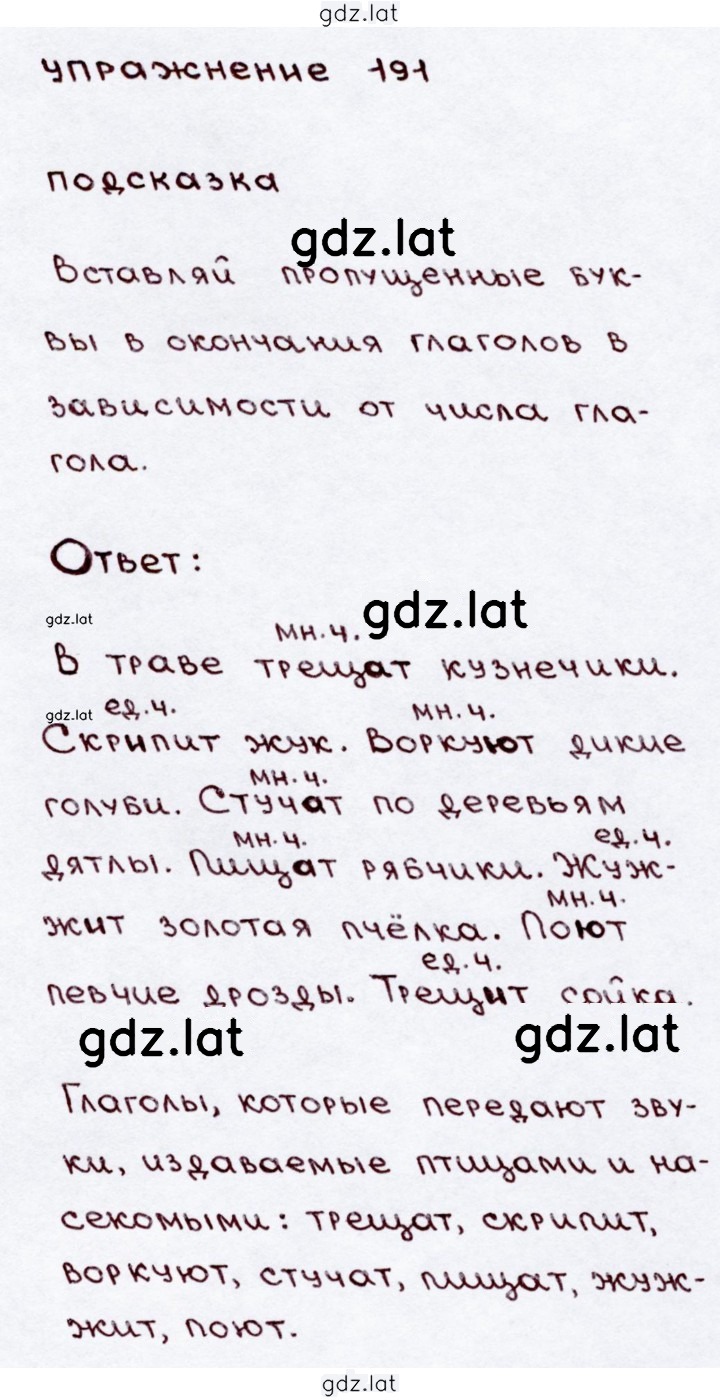 gdz.lat
упражнение 191
подсказка
gdz.lat
Вставляй пропущенные бук-
вы в окончания глаголов в
зависимости от числа гла-
гола.
Ответ:
gdz.lat мн.ч. gdz.lat
В траве трещат кузнечики.
gdz.lat ед.ч. мн.ч.
Скрипит жук. Воркуют дикие
мн.ч.
голуби. Стучат по деревьям
мн.ч. ед.ч.
дятлы. Пищат рябчики. Жуж-
мн.ч.
жит золотая пчёлка. Поют
ед.ч.
певчие дрозды. Трещит сойка.
gdz.lat gdz.lat
Глаголы, которые передают зву-
ки, издаваемые птицами и на-
секомыми: трещат, скрипит,
воркуют, стучат, пищат, жуж-
жит, поют.
gdz.lat